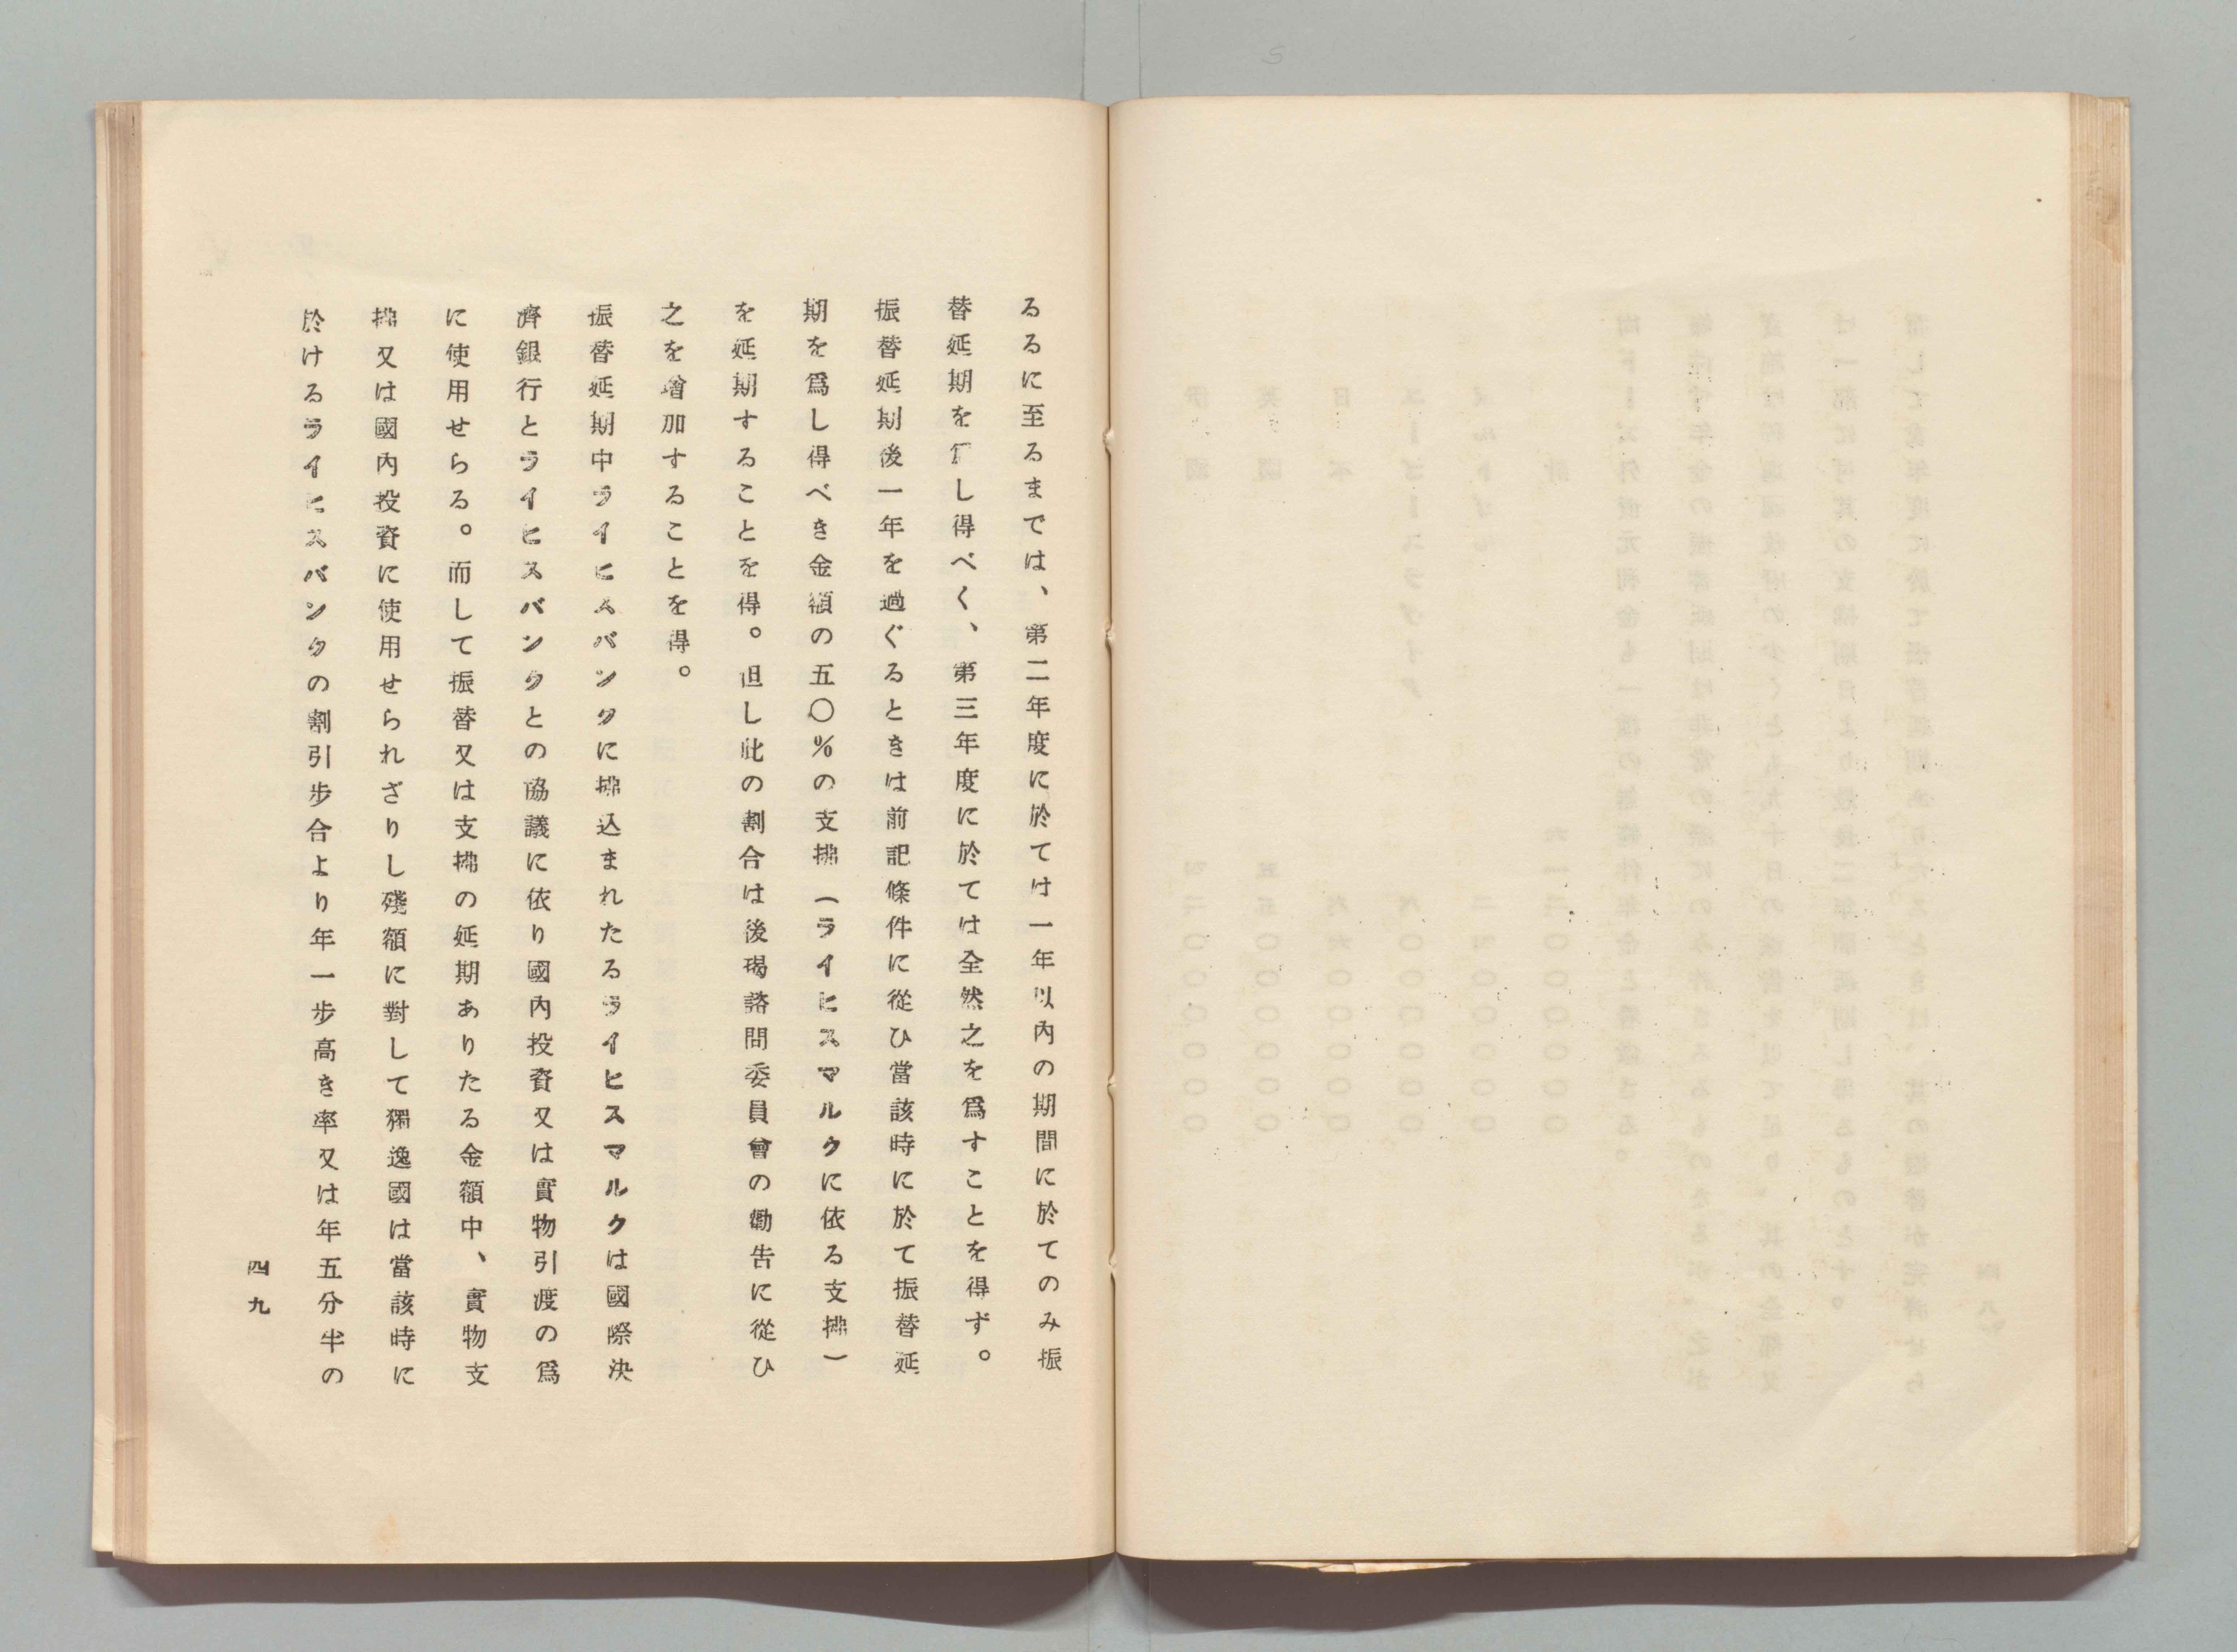 るるに至るまでは、第二年度に於ては一年以内の期間に於てのみ振
替延期を爲し得べく、第三年度に於ては全然之を爲すことを得ず。
振替延期後一年を過ぐるときは前記條件に從ひ當該時に於て振替延
期を爲し得べき金額の五〇%の支拂(ライヒスマルクに依る支拂)
を延期することを得。但し此の割合は後揭諮問委員會の勸吿に從ひ
之を增加することを得。
振替延期中ライヒスバンクに拂込まれたるライヒスマルクは國際決
濟銀行とライヒスバンクとの協議に依り國內投資又は實物引渡の爲
に使用せらる。而して振替又は支拂の延期ありたる金額中、實物支
拂又は國內投資に使用せられざりし殘額に對して獨逸國は當該時に
於けるライヒスバンクの割引步合より年一步高き率又は年五分半の
四九